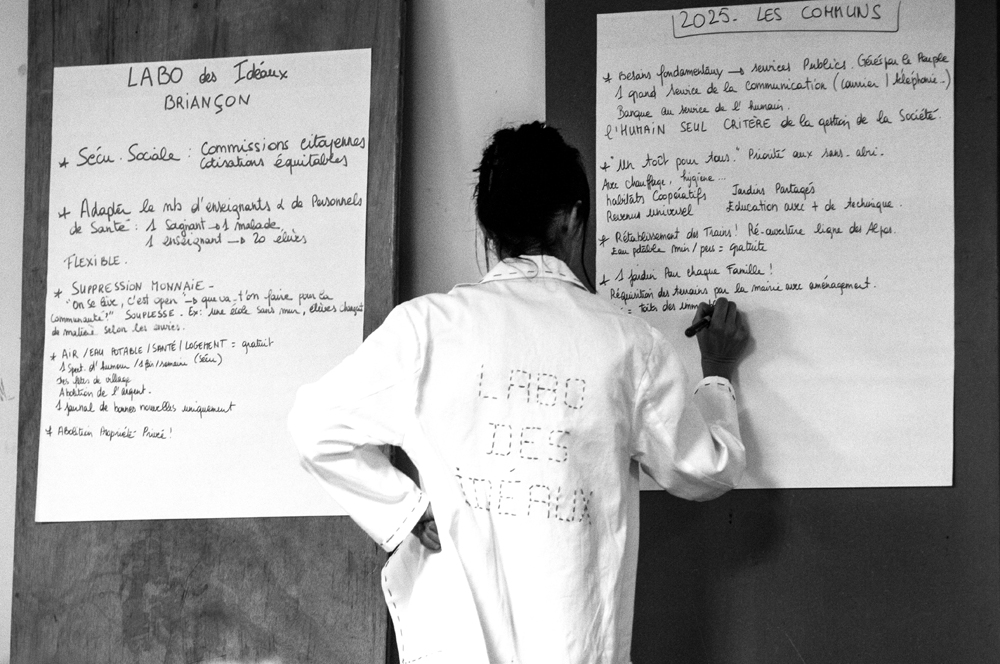 LABO des Idéaux
BRIANÇON
* Sécu. Sociale : Commissions citoyennes
Cotisations équitables
* Adapter le nb d'enseignants & de Personnels
de Santé : 1 Soignant → 1 malade
1 enseignant → 20 élèves
FLEXIBLE.
* SUPPRESSION MONNAIE -
"On se lève, c'est open" → que va-t'on faire pour la
Communauté?" SOUPLESSE - Ex: une école sans mur, élèves changent
de matière selon les envies.
* AIR / EAU POTABLE / SANTÉ / LOGEMENT = gratuit
1 Spect. d'humour / 1 fois / semaine (sécu)
des fêtes de village
Abolition de l'argent.
1 journal de bonnes nouvelles uniquement
* Abolition Propriété Privé !
2025. LES COMMUNS
* Besoins fondamentaux → services Publics. Gérés par le Peuple
1 grand service de la communication (courrier / téléphonie..)
Banque au service de l'humain.
l'HUMAIN SEUL CRITÈRE de la gestion de la Société.
* "Un toît pour tous." Priorité aux sans-abri.
Avec chauffage, hygiène...
habitats Coopératifs Jardins Partagés
Revenu universel Education avec + de technique.
* Rétablissement des Trains ! Ré-ouverture ligne des Alpes.
Eau potable min / pers = gratuite
* 1 jardin Pour chaque Famille !
Réquisition des terrains par la mairie avec aménagement.
= toits des imm
LABO
DES
IDÉAUX